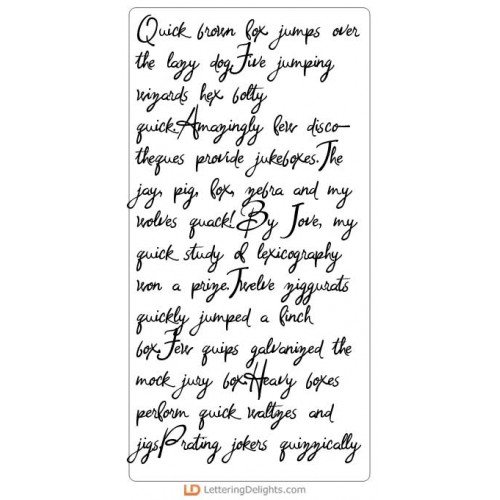 Quick brown fox jumps over
the lazy dog.Five jumping
wizards hex bolty
quick.Amazingly few disco–
theques provide jukeboxes.The
jay, pig, fox, zebra and my
wolves quack!By Jove, my
quick study of lexicography
won a prize.Twelve ziggurats
quickly jumped a finch
box.Few quips galvanized the
mock jury box.Heavy boxes
perform quick waltzes and
jigsPrating jokers quizzically
LD LetteringDelights.com